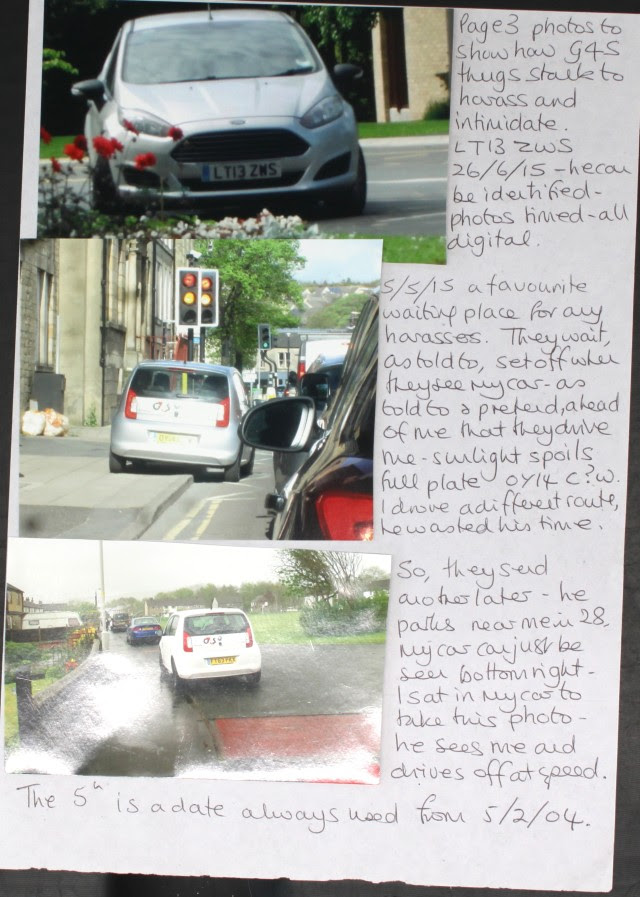 Page 3 photos to
show how G4S
thugs stalk to
harass and
intimidate.
LT13 ZWS
26/6/15 - he can
be identified -
photos timed - all
digital.
LT13 ZWS
5/5/15 a favourite
waiting place for any
harasses. They wait,
as told to, set off when
they see my car - as
told to & pretend, ahead
of me that they drive
me - sunlight spoils
full plate OY14 C?W.
I drove a different route,
he wasted his time.
So, they send
another later - he
parks near me in 28,
my car can just be
seen bottom right -
I sat in my car to
take this photo -
he sees me and
drives off at speed.
The 5th is a date always used from 5/2/04.